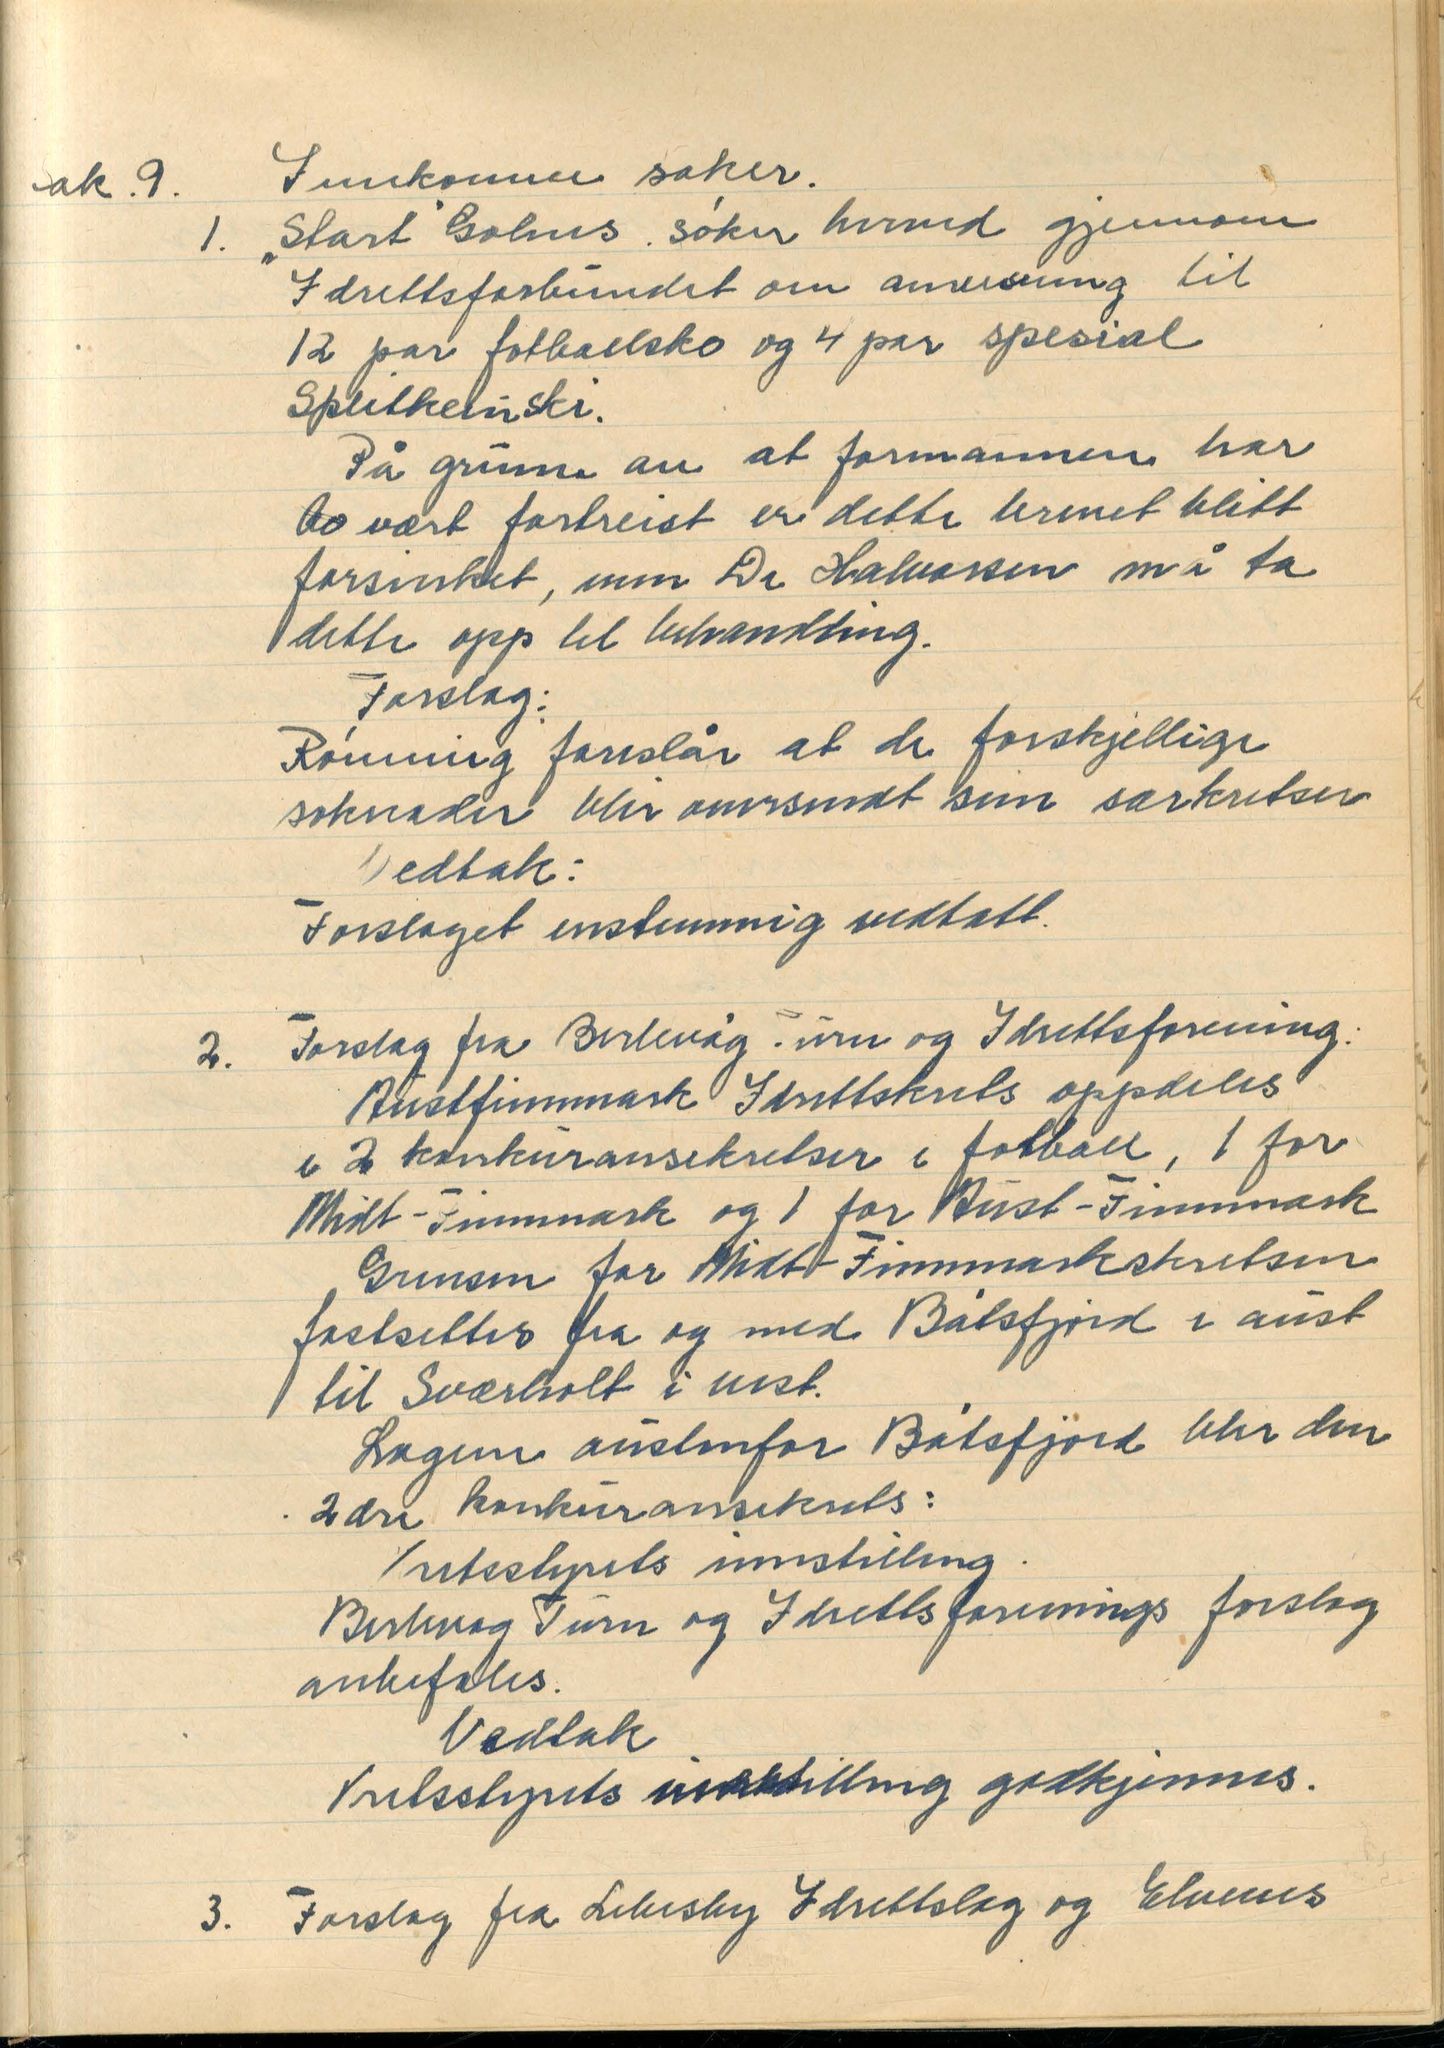 ak. 9. Innkomne saker.
1. „Start" Golnes. søker herved gjennom
Idrettsforbundet om anvisning til
12 par fotballsko og 4 par spesial
Splitkeinski.
På grunn av at formannen har
vært fortreist er dette brevet blitt
forsinket, men De Halvorsen må ta
dette opp til behandling.
Forslag:
Rønning foreslår at de forskjellige
søknader blir oversendt sine særkretser
Vedtak:
Forslaget enstemmig vedtatt.
2. Forslag fra Berlevåg Turn og Idrettsforening:
Austfinnmark Idrettskrets oppdeles
i 2 konkuransekretser i fotball, 1 for
Midt-Finnmark og 1 for Aust-Finnmark
Grensen for Midt-Finnmarkskretsen
fastsettes fra og med Båtsfjord i aust
til Sværholt i vest.
Lagene austenfor Båtsfjord blir den
2dre konkuransekrets:
Kretsstyrets innstilling.
Berlevåg Turn og Idrettsforenings forslag
anbefales.
Vedtak
Kretsstyrets innstilling godkjennes.
3. Forslag fra Lebesby Idrettslag og Elvenes